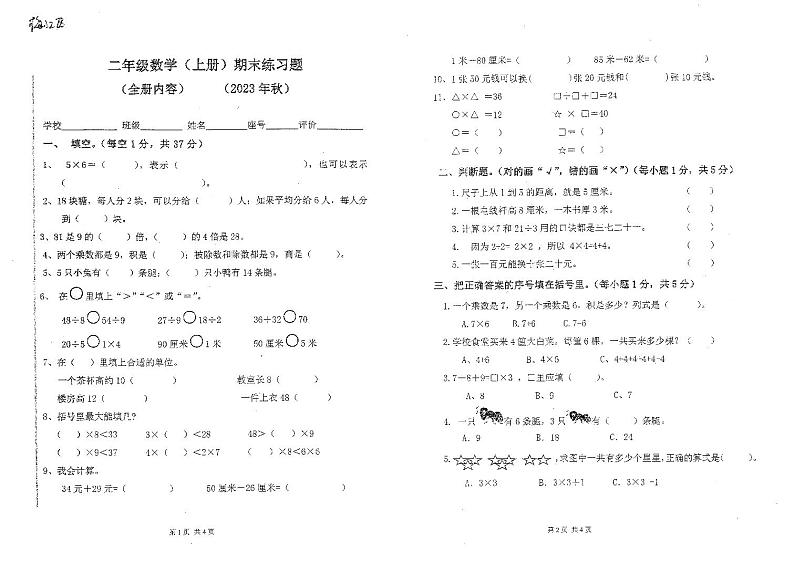 梅江区
二年级数学（上册）期末练习题
（全册内容）　（2023 年秋）
学校__________ 班级________ 姓名________座号______评价________
一、 填空。（每空 1 分，共 37 分）
1、 5×6＝（　　），表示（　　　　　　　　　　），也可以表示
（　　　　　　　　　　）。
2、18 块糖，每人分 2 块，可以分给（　　）人；如果平均分给 6 人，每人分
到（　　）块。
3、81 是 9 的（　　）倍，（　　）的 4 倍是 28。
4、两个乘数都是 9，积是（　　）；被除数和除数都是 9，商是（　　）。
5、5 只小兔有（　　）条腿；（　　）只小鸭有 14 条腿。
6、 在○里填上“＞”“＜”或“＝”。
48÷8○54÷9　　27÷9○18÷2　　36+32○70
20÷5○1×4　　90 厘米○1 米　　50 厘米○5 米
7、在（　　）里填上合适的单位。
一个茶杯高约 10（　　）　　教室长 8（　　）
楼房高 12（　　）　　一件上衣 48（　　）
8、括号里最大能填几？
（　　）×8＜33　　3×（　　）＜28　　48＞（　　）×9
（　　）×9＜37　　4×（　　）＜2×7　　（　　）×8＜6×5
9、我会计算。
34 元＋29 元=（　　）　　50 厘米－26 厘米=（　　）
第 1 页 共 4 页
1 米－80 厘米=（　　）　　85 米－62 米=（　　）
10、1 张 50 元钱可以换（　　）张 20 元钱和（　　）张 10 元钱。
11、△×△ =36　　□÷□＋□=24
○×△ =12　　☆ × □=40
○=（　　）　　□=（　　）
△=（　　）　　☆=（　　）
二、判断题。（对的画“√”，错的画“×”）（每小题 1 分，共 5 分）
1.尺子上从 1 到 5 的距离，就是 5 厘米。（　　）
2.一根电线杆高 8 厘米，一本书厚 3 米。（　　）
3.计算 3×7 和 21÷3 用的口诀都是三七二十一。（　　）
4. 因为 2+2= 2×2 ，所以 4×4=4+4。（　　）
5.一张一百元能换十张二十元。（　　）
三、把正确答案的序号填在括号里。（每小题 1 分，共 5 分）
1.一个乘数是 7，另一个乘数是 6，积是多少？列式是（　　）。
A.7×6　　B.7+6　　C.7-6
2.学校食堂买来 4 筐大白菜，每筐 6 棵，一共买来多少棵？（　　）
A、4+6　　B、4×5　　C、4+4+4+4+4
3.7－8＋9=□×3 ，□里应填（　　）。
A、8　　B、9　　C、7
4. 一只有 6 条腿，3 只有（　　）条腿。
A. 9　　B. 18　　C. 24
5.☆☆☆ ☆☆☆ ☆☆ ，求图中一共有多少个星星,正确的算式是（　　）。
A. 3×3　　B. 3×3÷1　　C. 3×3 -1
第 2 页 共 4 页